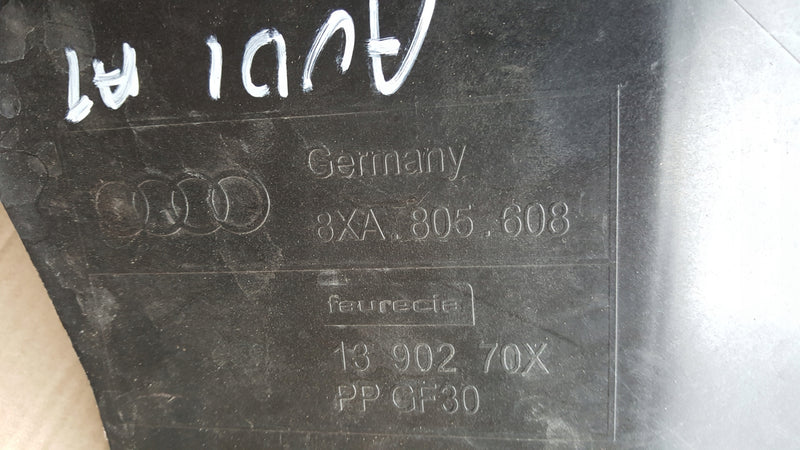 AUDI A1
Germany
8XA.805.608
faurecia
13 902 70X
PP GF30